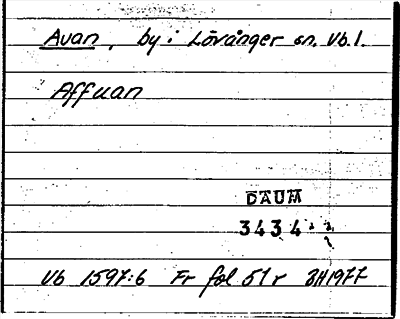 Avan, by i Lövånger sn. Vb. l.
Affuan
DAUM
3434
Vb 1597:6 Fr fol 51 r BH 1977